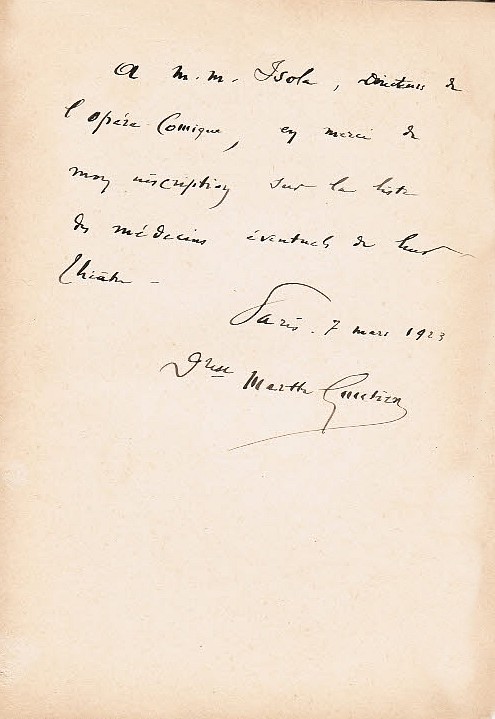 A M. M. Isola, Directeurs de
l'opéra-Comique, en merci de
mon inscription sur la liste
des médecins éventuels de leur
théâtre -
Paris. 7 mars 1923
Dresse Marthe